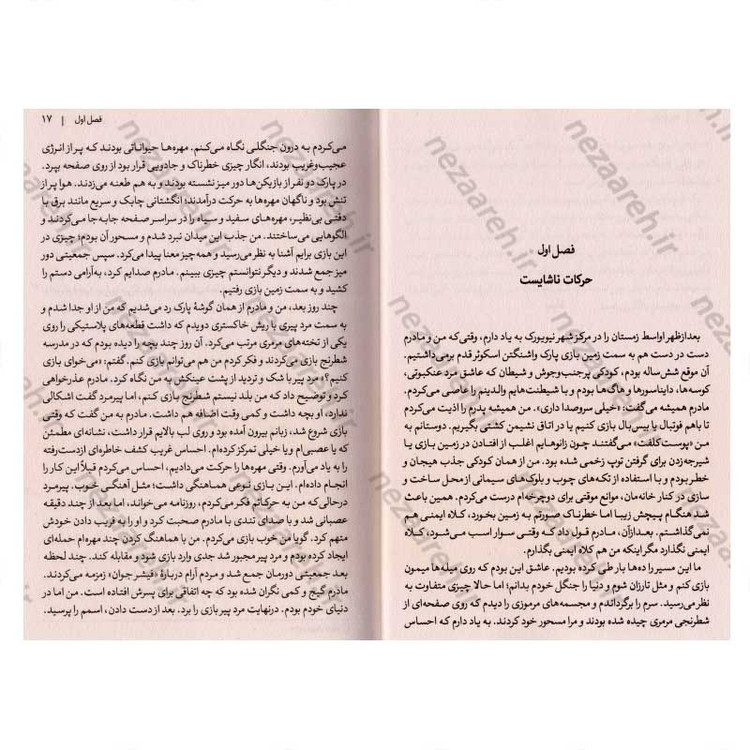 فصل اول
حرکات ناشایست
بعدازظهر اواسط زمستان را در مرکز شهر نیویورک به یاد دارم، وقتی‌که من و مادرم
دست در دست هم به سمت زمین بازی پارک واشنگتن اسکوئر قدم برمی‌داشتیم.
آن موقع شش‌ساله بودم، کودکی پرجنب‌وجوش و شیطان که عاشق مرد عنکبوتی،
کوسه‌ها، دایناسورها و هاگ‌ها بودم و با شیطنت‌هایم والدینم را عاصی می‌کردم.
مادرم همیشه می‌گفت: «خیلی سروصدا داری». من همیشه پدرم را اذیت می‌کردم
تا باهم فوتبال یا بیس‌بال بازی کنیم یا در اتاق نشیمن کشتی بگیریم. دوستانم به
من «پوست‌کلفت» می‌گفتند چون زانوهایم اغلب از افتادن در زمین بازی یا
شیرجه‌زدن برای گرفتن توپ زخمی شده بود. من از همان کودکی جذب هیجان و
خطر بودم و با استفاده از تکه‌های چوب و بلوک‌های سیمانی از محل ساخت و
سازی در کنار خانه‌مان، موانع موقتی برای دوچرخه‌ام درست می‌کردم. همین باعث
شد هنگام پیچش زیبا اما خطرناک صورتم به زمین بخورد، کلاه ایمنی هم
نمی‌گذاشتم. بعدازآن، مادرم قول داد که وقتی سوار اسب می‌شود، کلاه
ایمنی نگذارد مگر اینکه من هم کلاه ایمنی بگذارم.
ما این مسیر را ده‌ها بار طی کرده بودیم. عاشق این بودم که روی میله‌ها میمون
بازی کنم و مثل تارزان شوم و دنیا را جنگل خودم بدانم؛ اما حالا چیزی متفاوت به
نظر می‌رسید. سرم را برگرداندم و مجسمه‌های مرموزی را دیدم که روی صفحه‌ای از
شطرنجی مرمری چیده شده بودند و مرا مسحور خود کردند. به یاد دارم که احساس
فصل اول | ۱۷
می‌کردم به درون جنگلی نگاه می‌کنم. مهره‌ها حیواناتی بودند که پر از انرژی
عجیب‌وغریب بودند، انگار چیزی خطرناک و جادویی قرار بود از روی صفحه بپرد.
در پارک دو نفر از بازیکن‌ها دور میز نشسته بودند و به هم طعنه می‌زدند. هوا پر از
تنش بود و ناگهان مهره‌ها به حرکت درآمدند؛ انگشتانی چابک و سریع مانند برق با
دقتی بی‌نظیر، مهره‌های سفید و سیاه را در سراسر صفحه جابه‌جا می‌کردند و
الگوهایی می‌ساختند. من جذب این میدان نبرد شدم و مسحور آن بودم؛ چیزی در
این بازی برایم آشنا به نظر می‌رسید و همه‌چیز معنا پیدا می‌کرد. سپس جمعیتی دور
میز جمع شدند و دیگر نتوانستم چیزی ببینم. مادرم صدایم کرد، به‌آرامی دستم را
کشید و به سمت زمین بازی رفتیم.
چند روز بعد، من و مادرم از همان گوشهٔ پارک رد می‌شدیم که من از او جدا شدم و
به سمت مرد پیری با ریش خاکستری دویدم که داشت قطعه‌های پلاستیکی را روی
یکی از تخته‌های مرمری مرتب می‌کرد. آن روز چند بچه را دیده بودم که در مدرسه
شطرنج بازی می‌کردند و فکر کردم من هم می‌توانم بازی کنم. گفتم: «می‌خوای بازی
کنیم؟» مرد پیر با شک و تردید از پشت عینکش به من نگاه کرد. مادرم عذرخواهی
کرد و توضیح داد که من بلد نیستم شطرنج بازی کنم، اما پیرمرد گفت اشکالی
ندارد، او بچه داشت و کمی وقت اضافه هم داشت. مادرم به من گفت که وقتی
بازی شروع شد، زبانم بیرون آمده بود و روی لب بالایم قرار داشت، نشانه‌ای مطمئن
که یا عصبی‌ام و یا خیلی تمرکز کرده‌ام. احساس غریب کشف خاطره‌ای ازدست‌رفته
را به یاد می‌آورم. وقتی مهره‌ها را حرکت می‌دادیم، احساس می‌کردم قبلاً این کار را
انجام داده‌ام. این بازی نوعی هماهنگی داشت؛ مثل آهنگی خوب. پیرمرد
درحالی‌که من به حرکاتم فکر می‌کردم، روزنامه می‌خواند، اما بعد از چند دقیقه
عصبانی شد و با صدای تندی با مادرم صحبت کرد و او را به فریب دادن خودش
متهم کرد. گویا من خوب بازی می‌کردم. من با هماهنگ کردن چند مهره‌ام حمله‌ای
ایجاد کرده بودم و مرد پیر مجبور شد جدی وارد بازی شود و مقابله کند. چند لحظه
بعد جمعیتی دورمان جمع شد و مردم آرام دربارهٔ «فیشر جوان» زمزمه می‌کردند.
مادرم گیج و کمی نگران شده بود که چه اتفاقی برای پسرش افتاده است. من اما در
دنیای خودم بودم. درنهایت مرد پیر بازی را برد. بعد از دست دادن، اسمم را پرسید.
nezaareh.ir